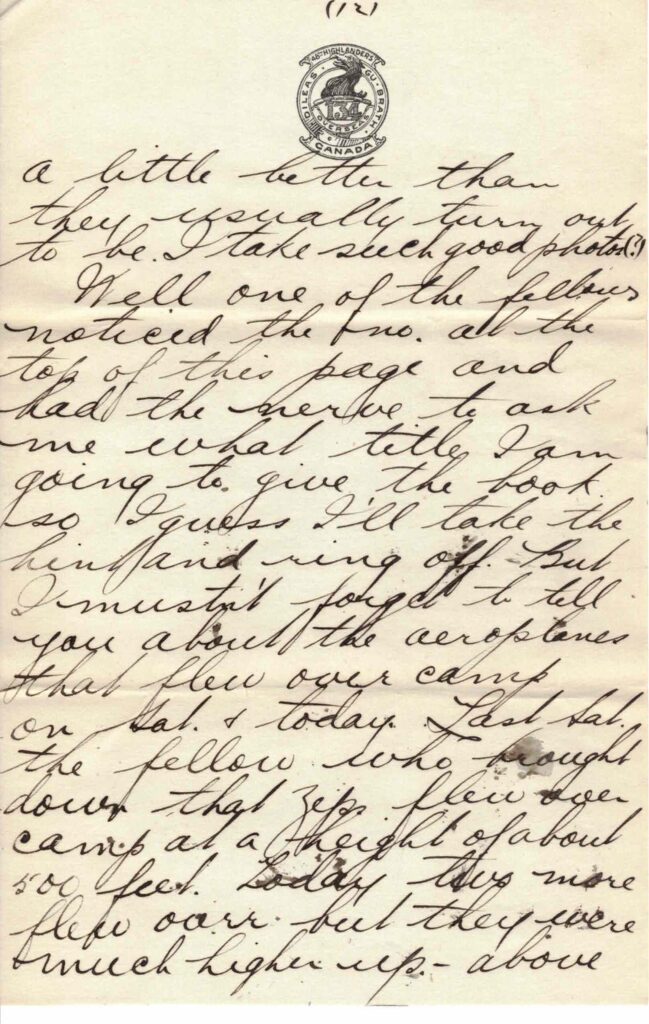 (12)
48TH HIGHLANDERS
DILEAS GU BRATH
134
OVERSEAS
CANADA
a little better than
they usually turn out
to be. I take such good photos(?)
Well one of the fellows
noticed the no. at the
top of this page and
had the nerve to ask
me what title I am
going to give the book
so I guess I'll take the
hint and ring off. But
I mustn't forget to tell
you about the aeroplanes
that flew over camp
on Sat. & today. Last Sat.
the fellow who brought
down that Zep. flew over
camp at a height of about
500 feet. Today two more
flew over but they were
much higher up. - above